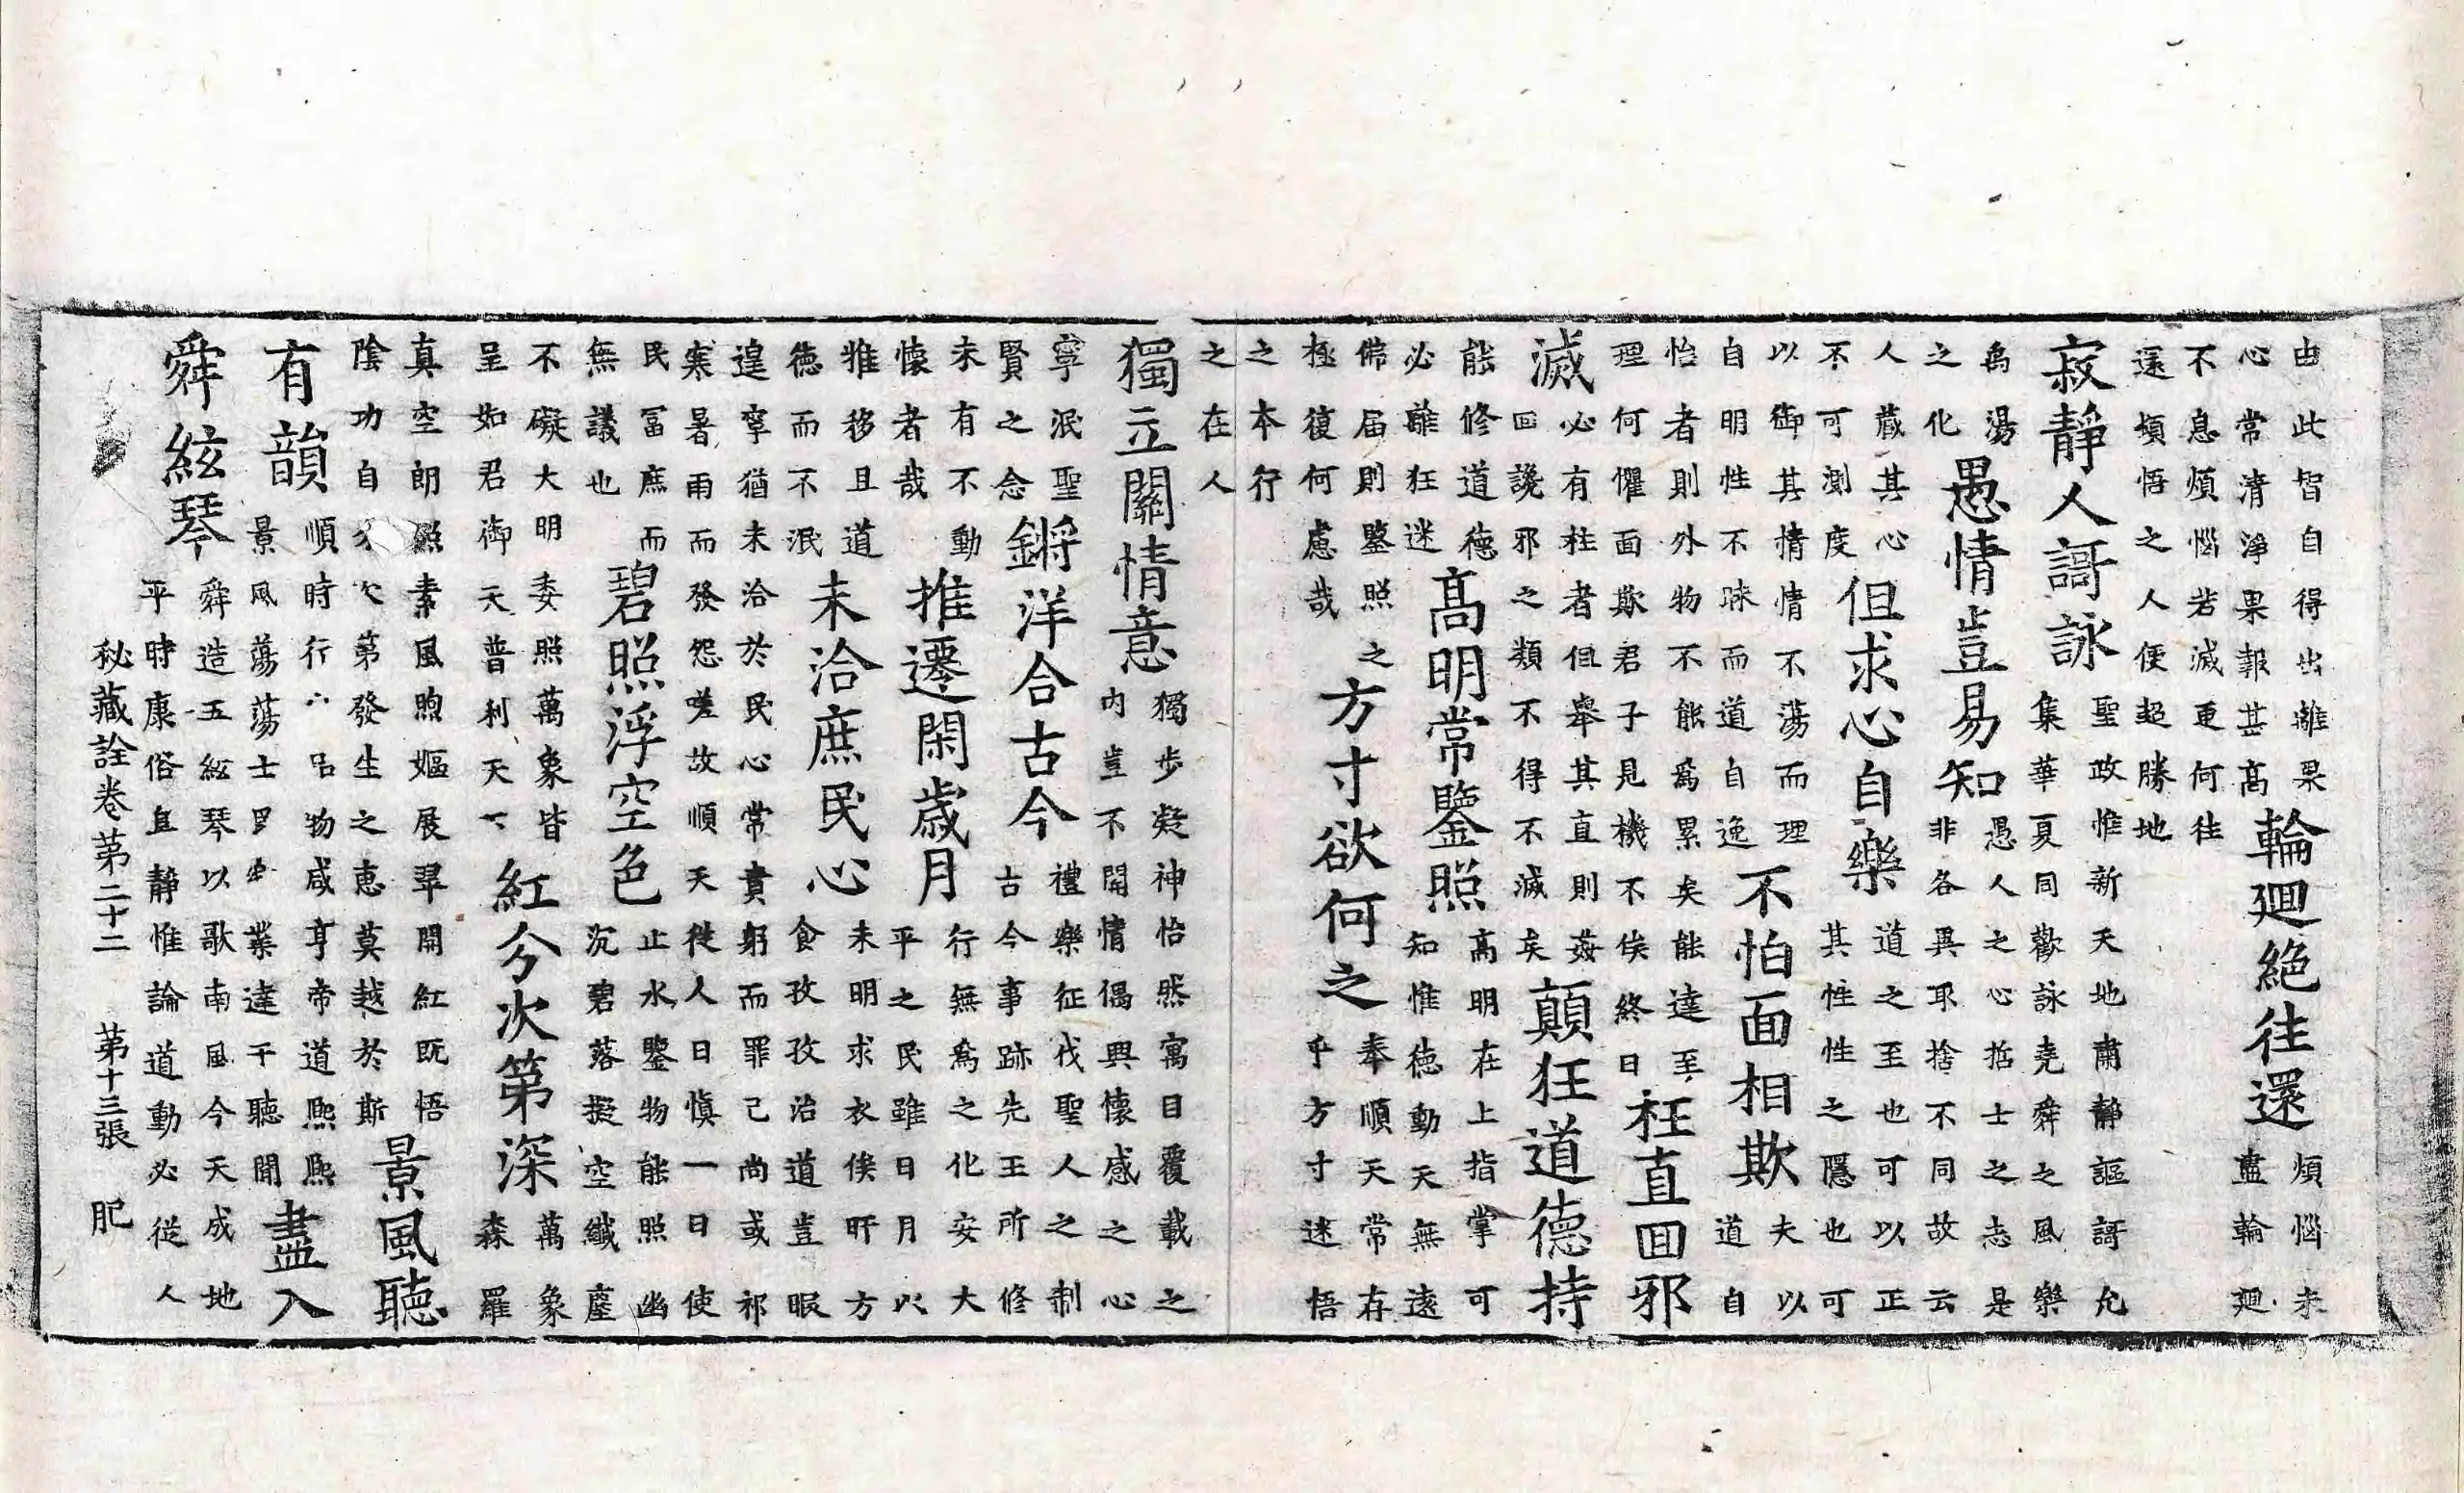 由此智自得出離果
心常清淨果報甚髙
輪廻絶往還
煩惱未
盡輪廻
不息煩惱若滅更何往
還頓悟之人便超勝地
寂靜人謌詠
聖政惟新天地肅靜謳謌允
集華夏同歡詠堯舜之風樂
為湯
之化
愚情豈易知
愚人之心哲士之志是
非各異取捨不同故云
人蔵其心
不可測度
但求心自樂
道之至也可以正
其性性之隱也可
以御其情情不蕩而理
自明性不昧而道自逸
不怕面相欺
夫以
道自
怡者則外物不能爲累矣能達至
理何懼面欺君子見機不俟終日
枉直回邪
滅
必有枉者但舉其直則姦
回讒邪之類不得不滅矣
顛狂道德持
能修道德
必離狂迷
髙明常鑒照
髙明在上指掌可
知惟德動天無遠
佛届則鑒照之
極復何慮哉
方寸欲何之
奉順天常存
乎方寸迷悟
之本行
之在人
獨立關情意
獨步凝神怡然寓目覆載之
内豈不開情偶興懷感之心
寧泯聖
賢之念
鏘洋合古今
禮樂征伐聖人之制
古今事跡先王所修
未有不動
懷者哉
推遷閑歳月
行無爲之化安大
平之民雖日月以
雅移且道
德而不泯
未洽庶民心
未明求衣俟旰方
食孜孜治道豈暇
遑寧猶未洽於民心常責躬而罪己尚或祁
寒暑雨而發怨嗟故順天從人日慎一日使
民冨庶而
無議也
碧照浮空色
止水鑒物能照幽
沉碧落擬空纖塵
不礙大明委照萬象皆
呈如君御天普利天
紅分次第深
萬象
森羅
真空朗照素風煦嫗展翠開紅既悟
陰功自次第發生之恵莫越於斯
景風聽
有韻
順時行吕物咸亨帝道熈熈
景風蕩蕩士業達于聽聞
盡入
舜絃琴
舜造五絃琴以歌南風今天成地
平時康俗且靜惟論道動必從人
秘藏詮卷第二十二 第十三張 肥